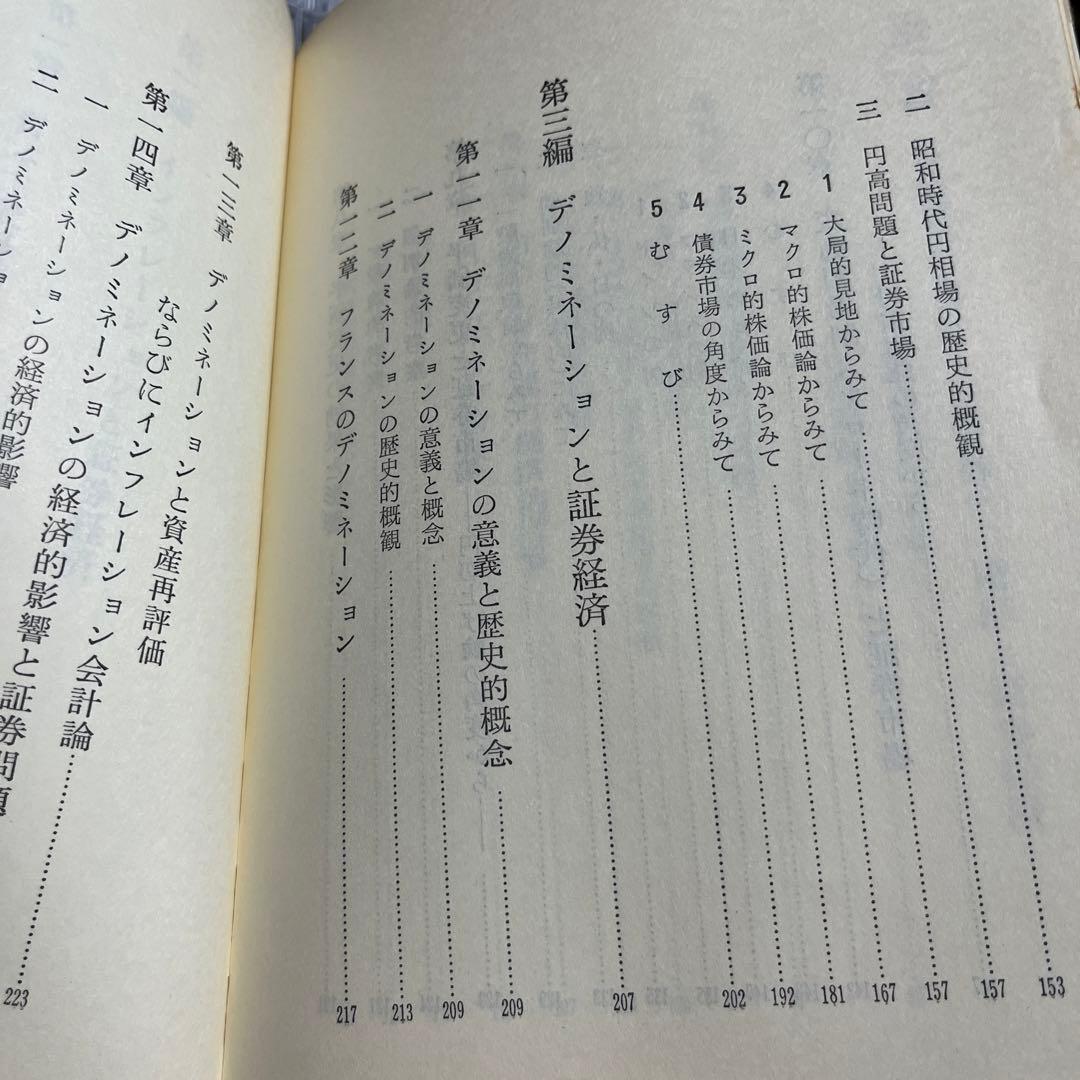 二 昭和時代円相場の歴史的概観……153
三 円高問題と証券市場……157
1 大局的見地からみて……157
2 マクロ的株価論からみて……167
3 ミクロ的株価論からみて……181
4 債券市場の角度からみて……192
5 むすび……202
第三編 デノミネーションと証券経済……207
第一一章 デノミネーションの意義と歴史的概念……209
一 デノミネーションの意義と概念……209
二 デノミネーションの歴史的概観……213
第一二章 フランスのデノミネーション……217
第一三章 デノミネーションと資産再評価
ならびにインフレーション会計論……223
第一四章 デノミネーションの経済的影響と証券問題
一 デノミネーションの経済的影響
二 デノミネーショ